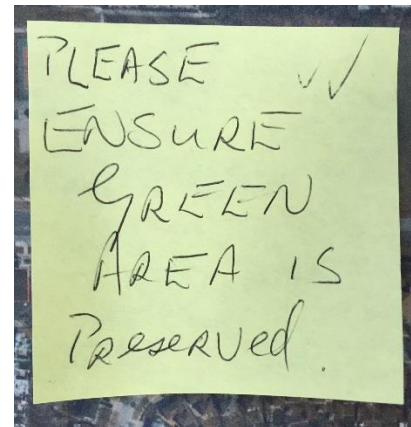 PLEASE ✓✓
ENSURE
GREEN
AREA IS
PReseRVed.